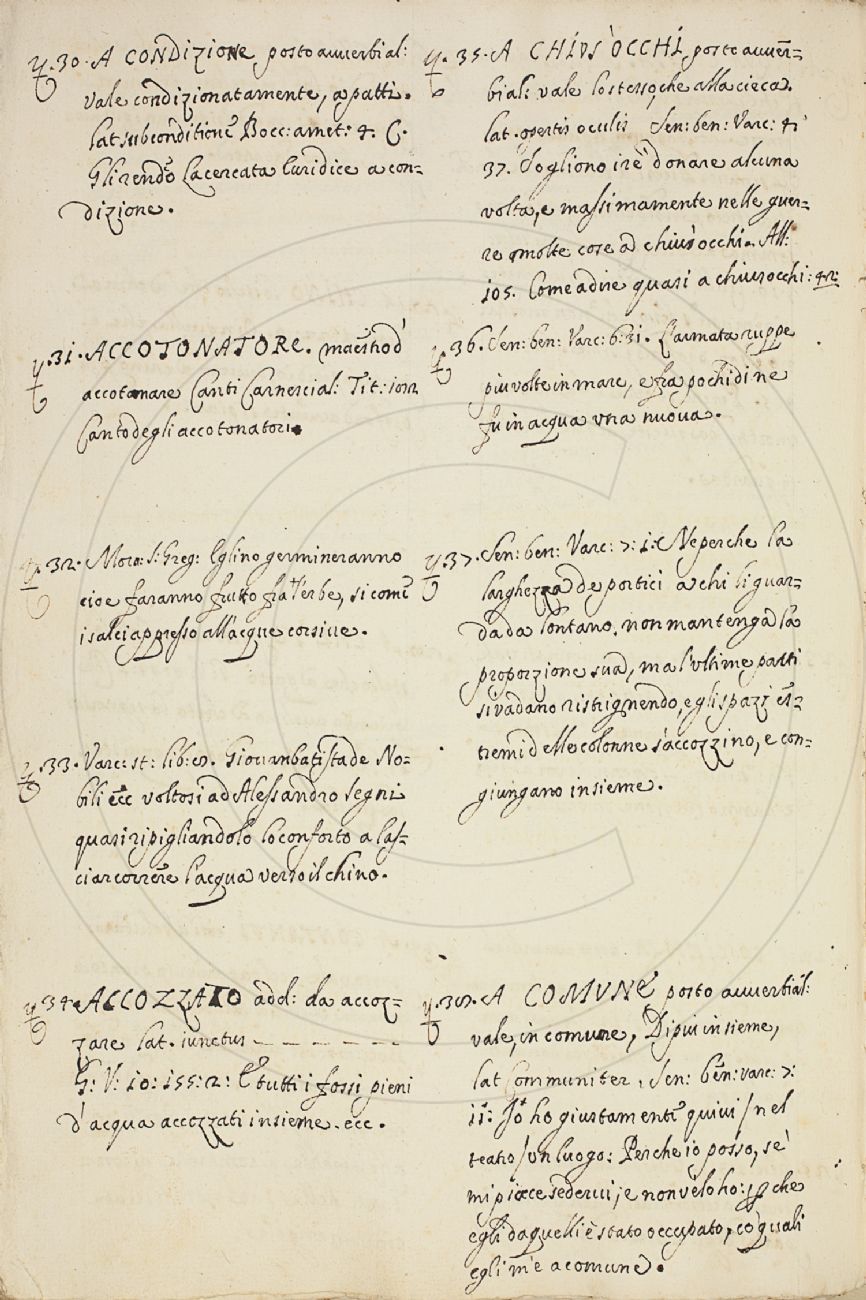 30. A CONDIZIONE posto auuerbial:
vale condizionatamente, a patti.
lat. sub conditione Bocc: amet: 4. C.
Gli rendo la cercata luridice a con=
dizione.
31. ACCOTONATORE. maestro d'
accotonare Canti Carnescial: Tit:
Canto degli accotonatori.
32. Mora: S: Greg: Eglino germineranno
cioe faranno frutto fra l'erbe, si come
i salci appresso all'acque corsiue.
33. Varc: st: lib: Giouanbatista de No=
bili ecc voltosi ad Alessandro Segni
quasi ripigliandolo lo conforto a las=
ciar correre l'acqua verso il chino.
34. ACCOZZATO add: da accoz=
zare lat. iunctus — — — — —
G: V: 10: 155: 2: E tutti i fossi pieni
d'acqua accozzati insieme. ecc.
35. A CHIUS'OCCHI posto auuer=
bial: vale lo stesso, che alla cieca.
lat. opertis oculis Sen: ben: Varc: 4:
37. Sogliono i re donare alcuna
volta, e massimamente nelle guer=
re molte cose ad chius'occhi. All:
105. Come a dire quasi a chiusocchi:
36. Sen: ben: Varc: 6: 31. L'armata ruppe
piu volte in mare, e fra pochi dì ne
fu in acqua vna nuoua.
37. Sen: ben: Varc: 7: 1: Ne perche la
larghezza de portici a chi li guar=
da da lontano, non mantenga la
proporzione sua, ma l'ultime parti
si vadano ristrignendo, e gli spazi es=
tremi delle colonne s'accozzino, e con=
giungano insieme.
A COMVNE posto auuerbial:
vale, in comune, Di piu insieme,
lat Communiter, Sen: ben: varc: 7:
11: Io ho giustamente quiui / nel
teatro / vn luogo: Perche io posso, se
mi piace sederui, e non ve lo ho: che
egli da quelli è stato occupato, co' quali
egli m'è a comune.